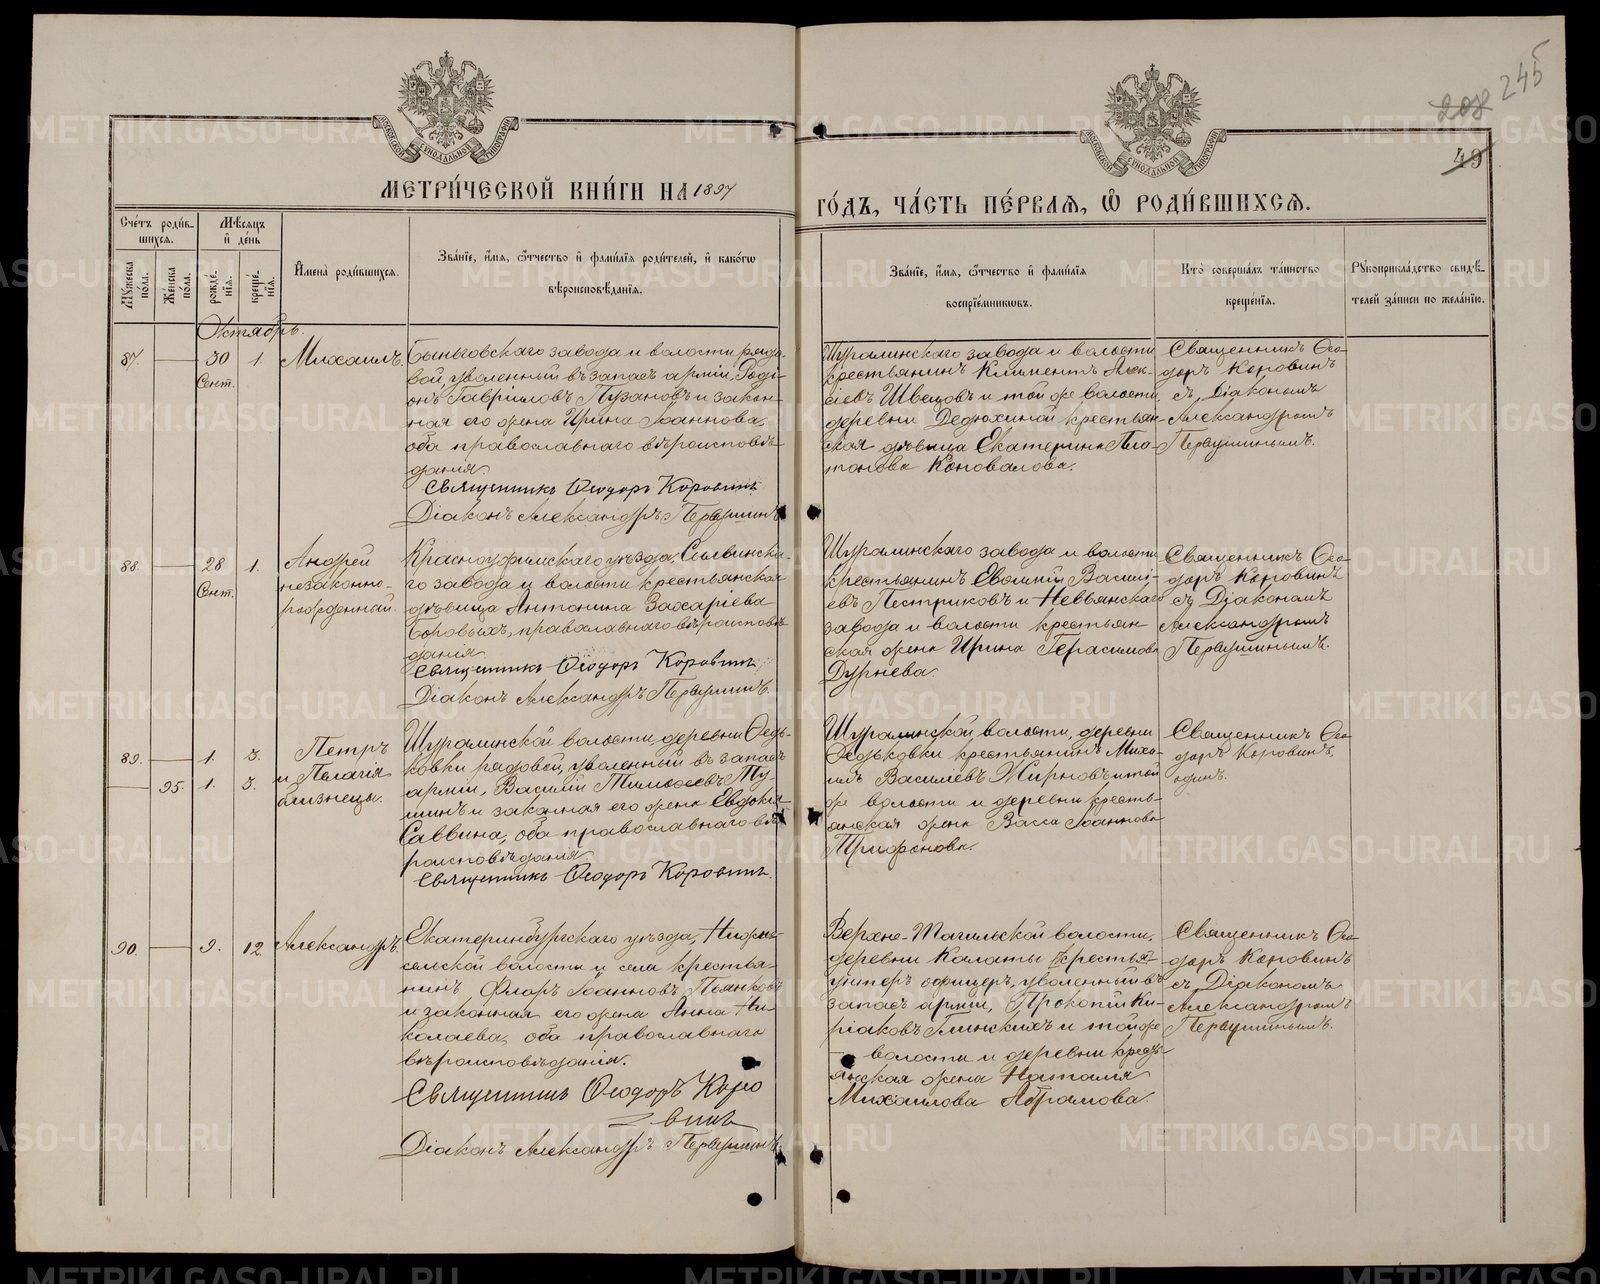 245
208
49
МЕТРИ́ЧЕСКОЙ КНИ́ГИ НА 1897
ГО́ДЪ, ЧА́СТЬ ПЕ́РВАЯ, Ѡ҆ РОДИ́ВШИХСЯ.
Сче́тъ роди́вшихся.
Мꙋ́жеска по́ла.
Же́нска по́ла.
Мѣ́сяцъ и҆ де́нь
рожде́нїя.
креще́нїя.
И҆мена̀ роди́вшихся.
Зва́нїе, и҆́мя, ѻ҆́тчество и҆ фами́лїя роди́телей, и҆ како́гѡ
вѣроисповѣ́данїя.
Зва́нїе, и҆́мя, ѻ҆́тчество и҆ фами́лїя
воспрїе́мниковъ.
Кто̀ соверша́лъ та́инство
креще́нїя.
Рꙋкоприкла́дство свидѣ́-
телей за́писи по жела́нїю.
Октябрь.
87.
30
Сент.
1.
Михаилъ.
Быньговскаго завода и волости рядо-
вой, уволенный въ запасъ арміи, Родi-
онъ Гавриловъ Пузановъ и закон-
ная его жена Ирина Іоаннова,
оба православнаго вѣроисповѣ-
данія.
Священникъ Ѳеодоръ Коровинъ
Діаконъ Александръ Первушинъ
Шуралинскаго завода и волости
крестьянинъ Климентъ Алек-
сіевъ Швецовъ и той же волости,
деревни Дедюхиной крестьян-
ская дѣвица Екатерина Пла-
тонова Коновалова.
Священникъ Ѳео-
доръ Коровинъ
съ Діакономъ
Александромъ
Первушинымъ.
88.
28
Сент.
1.
Андрей
незаконно-
рожденный.
Красноуфимскаго уѣзда, Сылвинска-
го завода и волости крестьянская
дѣвица Антонина Захаріева
Боровыхъ, православнаго вѣроисповѣ-
данія
Священникъ Ѳеодоръ Коровинъ
Діаконъ Александръ Первушинъ.
Шуралинскаго завода и волости
крестьянинъ Евѳимій Василі-
евъ Пестриковъ и Невьянскаго
завода и волости крестьян
ская жена Ирина Герасимова
Дурнева.
Священникъ Ѳео-
доръ Коровинъ
съ Діакономъ
Александромъ
Первушинымъ.
89.
1.
3.
95.
1.
3.
Петръ
и Пелагія
близнецы.
Шуралинской волости, деревни Ѳедь-
ковки рядовой, уволенный въ запасъ
арміи, Василій Тимоѳеевъ
и законная его жена Евдокія
Саввина, оба православнаго вѣ-
роисповѣданія.
Священникъ Ѳеодоръ Коровинъ.
Шуралинской волости, деревни
Ѳедьковки крестьянинъ Миха-
илъ Василіевъ Жирновъ и той
же волости и деревни кресть-
янская жена Васса Іоаннова
Трифонова.
Священникъ Ѳео-
доръ Коровинъ
одинъ.
90.
9.
12.
Александръ.
Екатеринбургскаго уѣзда,
сельской волости и села крестья-
нинъ Флоръ Іоанновъ Пьянковъ
и законная его жена Анна Ни-
колаева, оба православнаго
вѣроисповѣданія.
Священникъ Ѳеодоръ Коро
винъ
Діаконъ Александръ Первушинъ.
Верхне-Тагильской волости,
деревни Калаты
унтеръ офицеръ, уволенный въ
запасъ арміи, Прокопій Ки-
ріаковъ Глинскихъ и той же
волости и деревни кресть-
янская жена Наталія
Михаилова Абрамова.
Священникъ Ѳео-
доръ Коровинъ
съ Діакономъ
Александромъ
Первушинымъ.